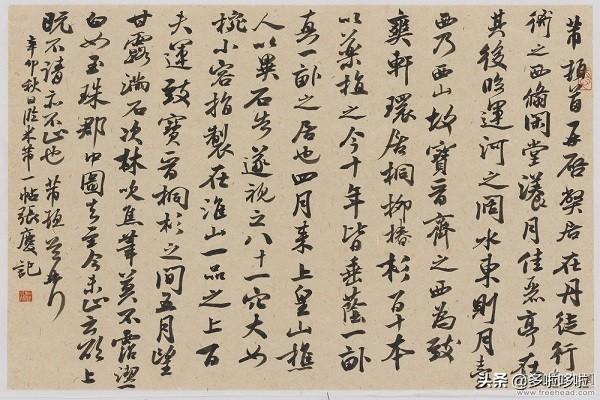 芾頓首再啟弊居在丹徒行
衙之西翛閑堂漾月佳麗亭在
其後臨運河之闊水東則月臺
西乃西山故寶晉齋之西為致
爽軒環居桐柳椿杉百十本
以藥植之今十年皆垂蔭一畝
真一畝之居也四月末上皇山樵
人以異石告遂視之八十一穴大如
椀小容指製在淮山一品之上百
夫運致寶晉桐杉之間五月望
甘露滿石次林次焦葦莫不霑潔
白如玉珠郡中圖去至今未止云欲上
既不請亦不止也 芾頓首再拜
辛卯秋日臨米芾一帖張慶記
头条 @多啦哆啦
www.freehead.com